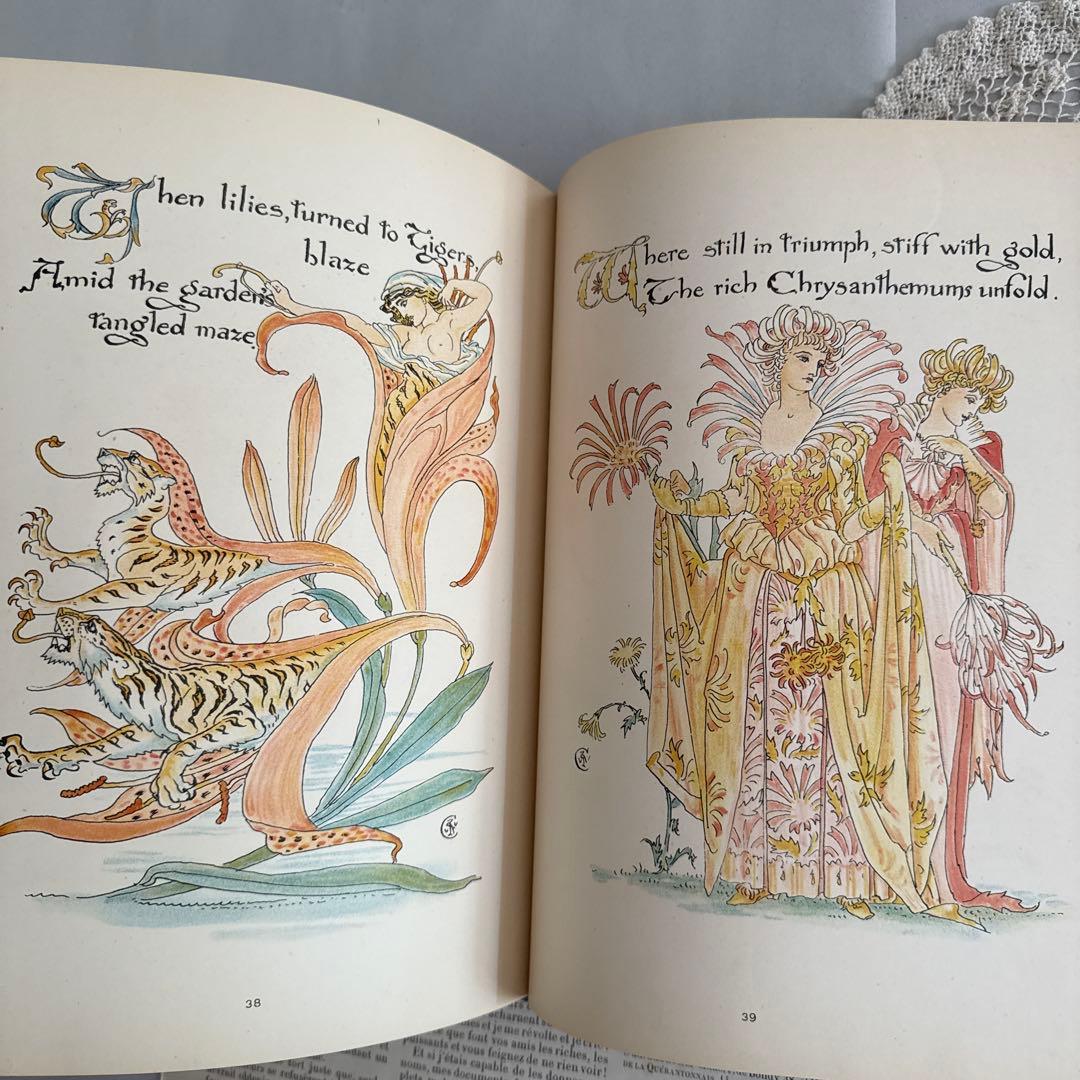 When lilies, turned to Tigers,
blaze
Amid the garden's
tangled maze.
38
Where still in triumph, stiff with gold,
The rich Chrysanthemums unfold.
39
et je me révolte et
que font vos amis les riches, les
issants et vous feignez de ne rien voir!
Et si j'étais capable de donner des
noms, mes
DE LA QUÉRANTONNAIS